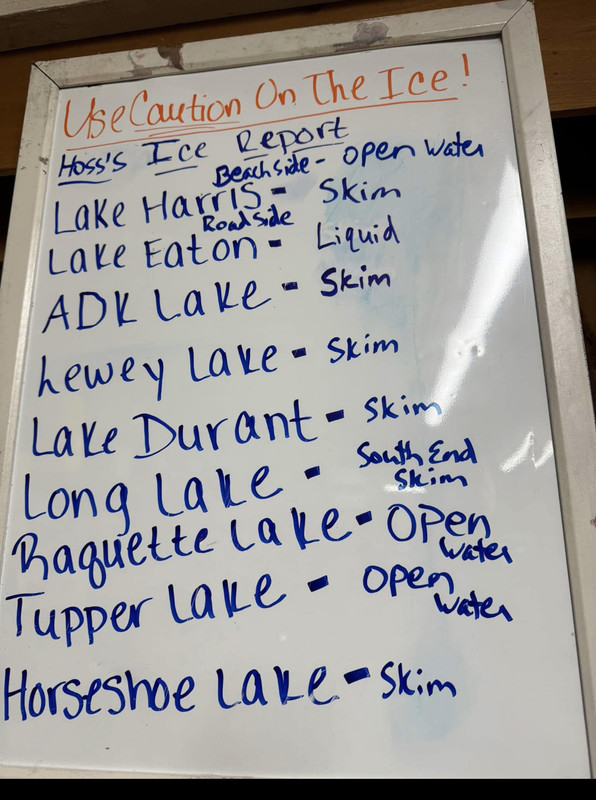 Use Caution On The Ice!
Hoss's Ice Report
Beachside - Open Water
Lake Harris - Skim
Roadside
Lake Eaton - Liquid
ADK Lake - Skim
Lewey Lake - Skim
Lake Durant - Skim
Long Lake - South End
Skim
Raquette Lake - Open
Water
Tupper Lake - Open
Water
Horseshoe Lake - Skim